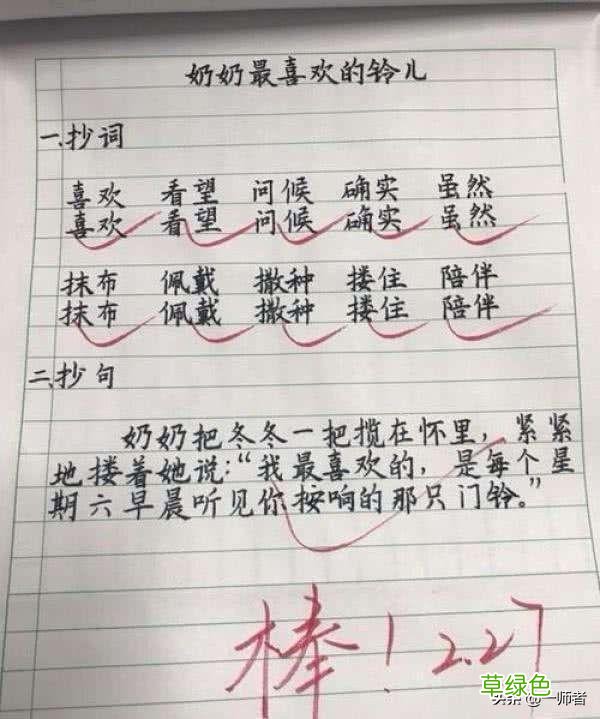 奶奶最喜欢的铃儿
一、抄词
喜欢 看望 问候 确实 虽然
喜欢 看望 问候 确实 虽然
抹布 佩戴 撒种 搂住 陪伴
抹布 佩戴 撒种 搂住 陪伴
二、抄句
奶奶把冬冬一把揽在怀里，紧紧
地搂着她说：“我最喜欢的，是每个星
期六早晨听见你按响的那只门铃。”
棒！2.27
头条 @一师者
草绿色